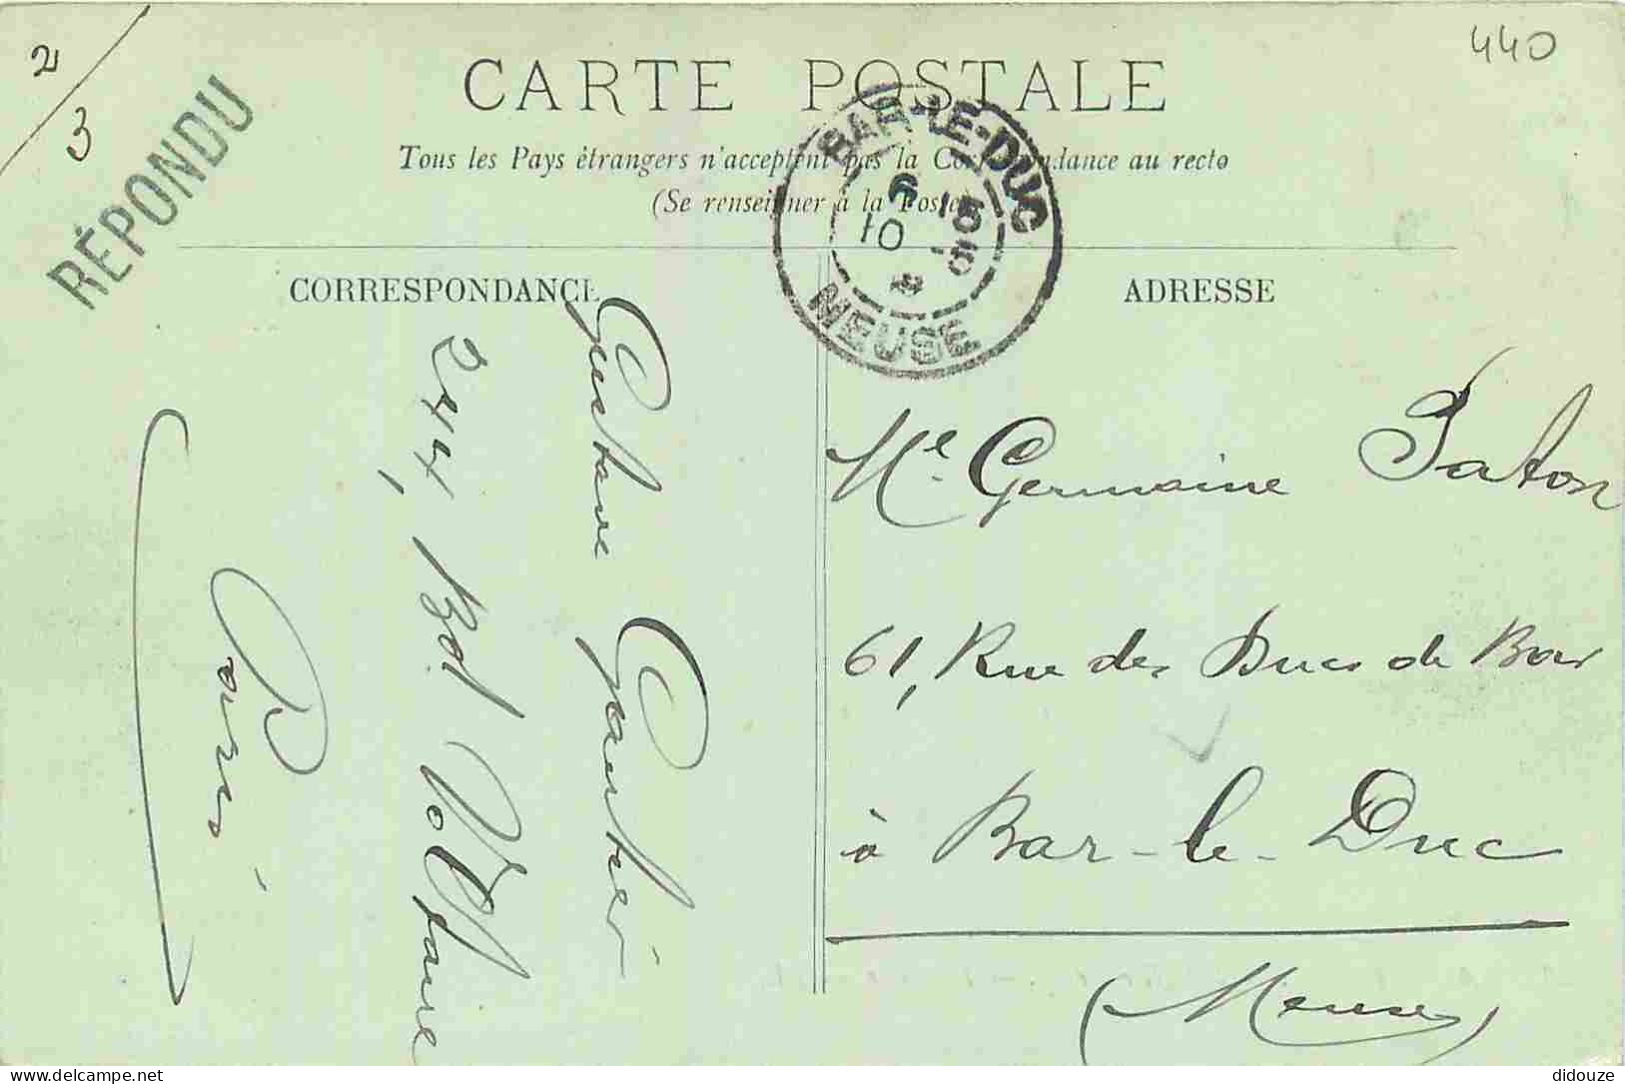 2/3
RÉPONDU
440
CARTE POSTALE
Tous les Pays étrangers n'acceptent pas la Correspondance au recto
(Se renseigner à la Poste)
BAR-LE-DUC
6 15
10 -5
MEUSE
CORRESPONDANCE
ADRESSE
Gustave Gautier
244, Bd Voltaire
Paris
Mle Germaine Paton
61, Rue des Ducs de Bar
à Bar-le-Duc
(Meuse)
www.delcampe.net
didouze